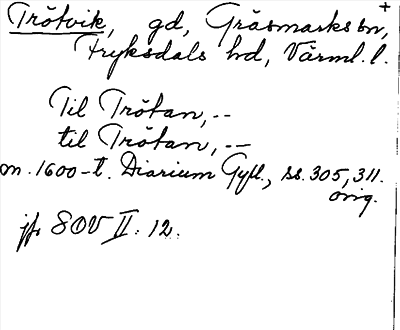 Trötvik, gd, Gräsmarks sn, +
Fryksdals hd, Värml. l.
Til Trötan, --
til Trötan, --
m. 1600-t. Diarium Gyll., ss. 305, 311.
orig.
jfr SOV II. 12.